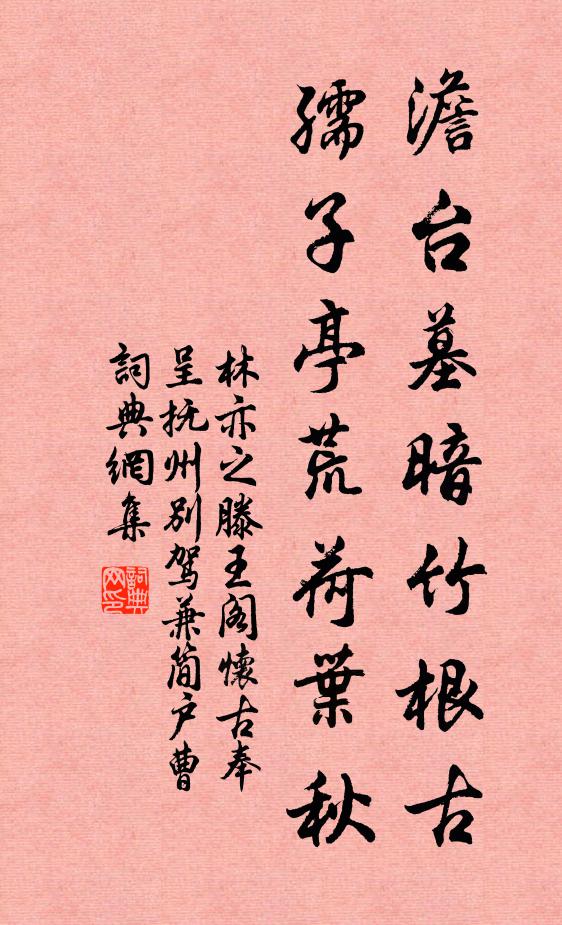 澹台墓暗竹根古
孺子亭荒荷葉秋
林亦之滕王阁懷古奉
呈抚州别驾兼简户曹
詞典網集
詞典网印